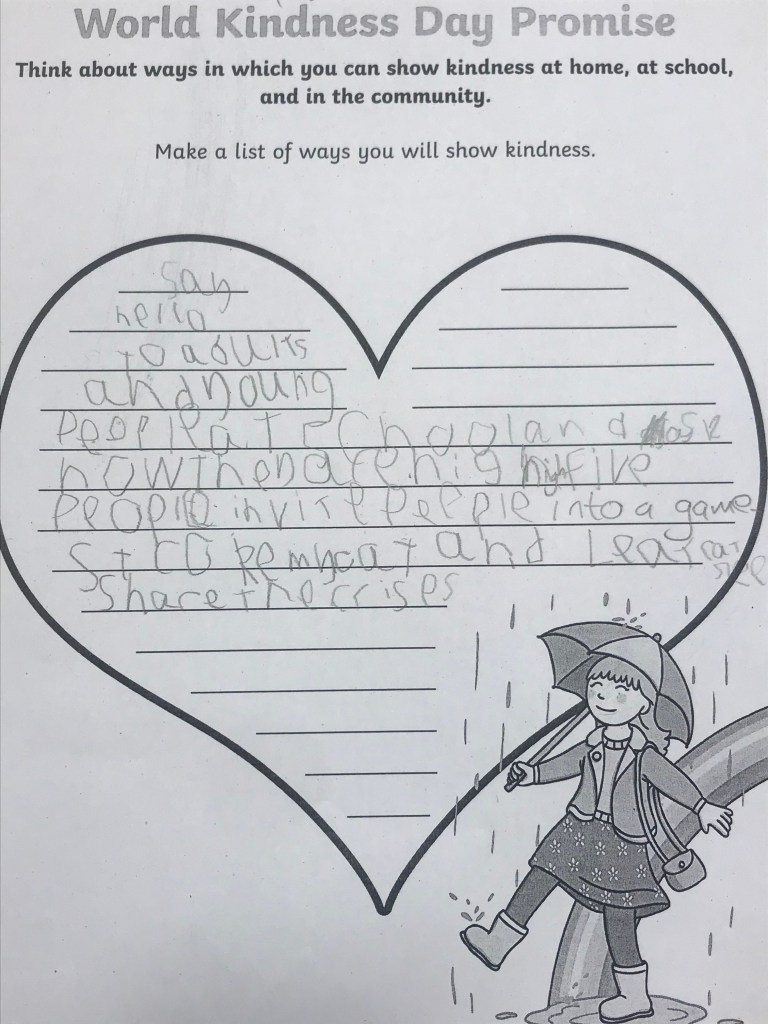 World Kindness Day Promise
Think about ways in which you can show kindness at home, at school,
and in the community.
Make a list of ways you will show kindness.
Say
hello
to adults
and young
peeple at school and ask
how they are. high five
people. invite peeple into a game
my cat and
share the crisps